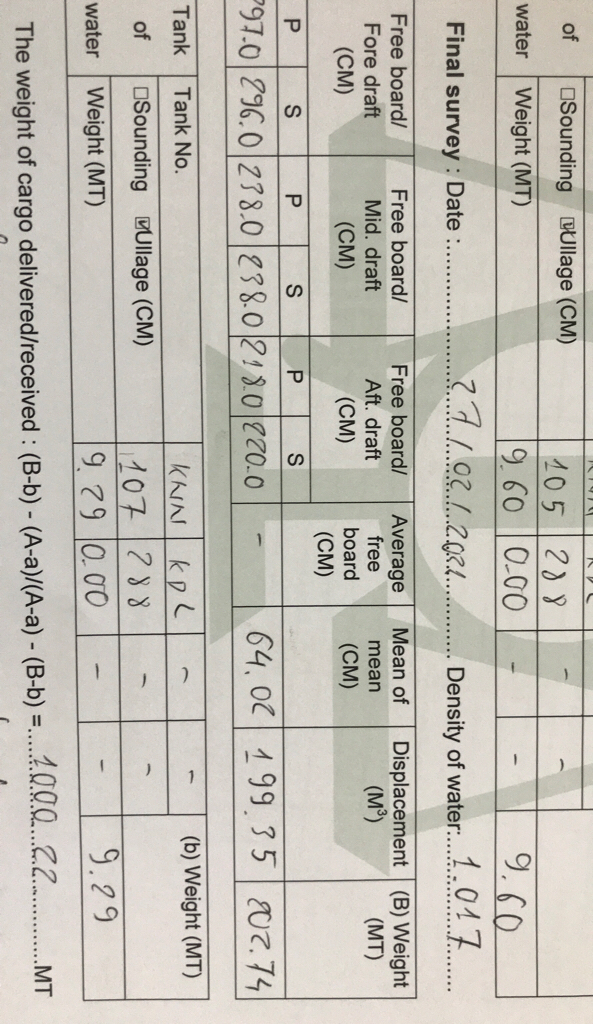 of ☐Sounding ☑Ullage (CM) 105 288 - -
water Weight (MT) 9.60 0.00 - - 9.60
Final survey : Date : 27/02/2021 Density of water: 1.017
Free board/ Fore draft (CM) Free board/ Mid. draft (CM) Free board/ Aft. draft (CM) Average free board (CM) Mean of mean (CM) Displacement (M³) (B) Weight (MT)
P S P S P S
297.0 296.0 238.0 238.0 218.0 220.0 - 64.02 199.35 202.74
Tank Tank No. KNN KDL - - (b) Weight (MT)
of ☐Sounding ☑Ullage (CM) 107 288 - -
water Weight (MT) 9.29 0.00 - - 9.29
The weight of cargo delivered/received : (B-b) - (A-a)/(A-a) - (B-b) = 1000.22 MT